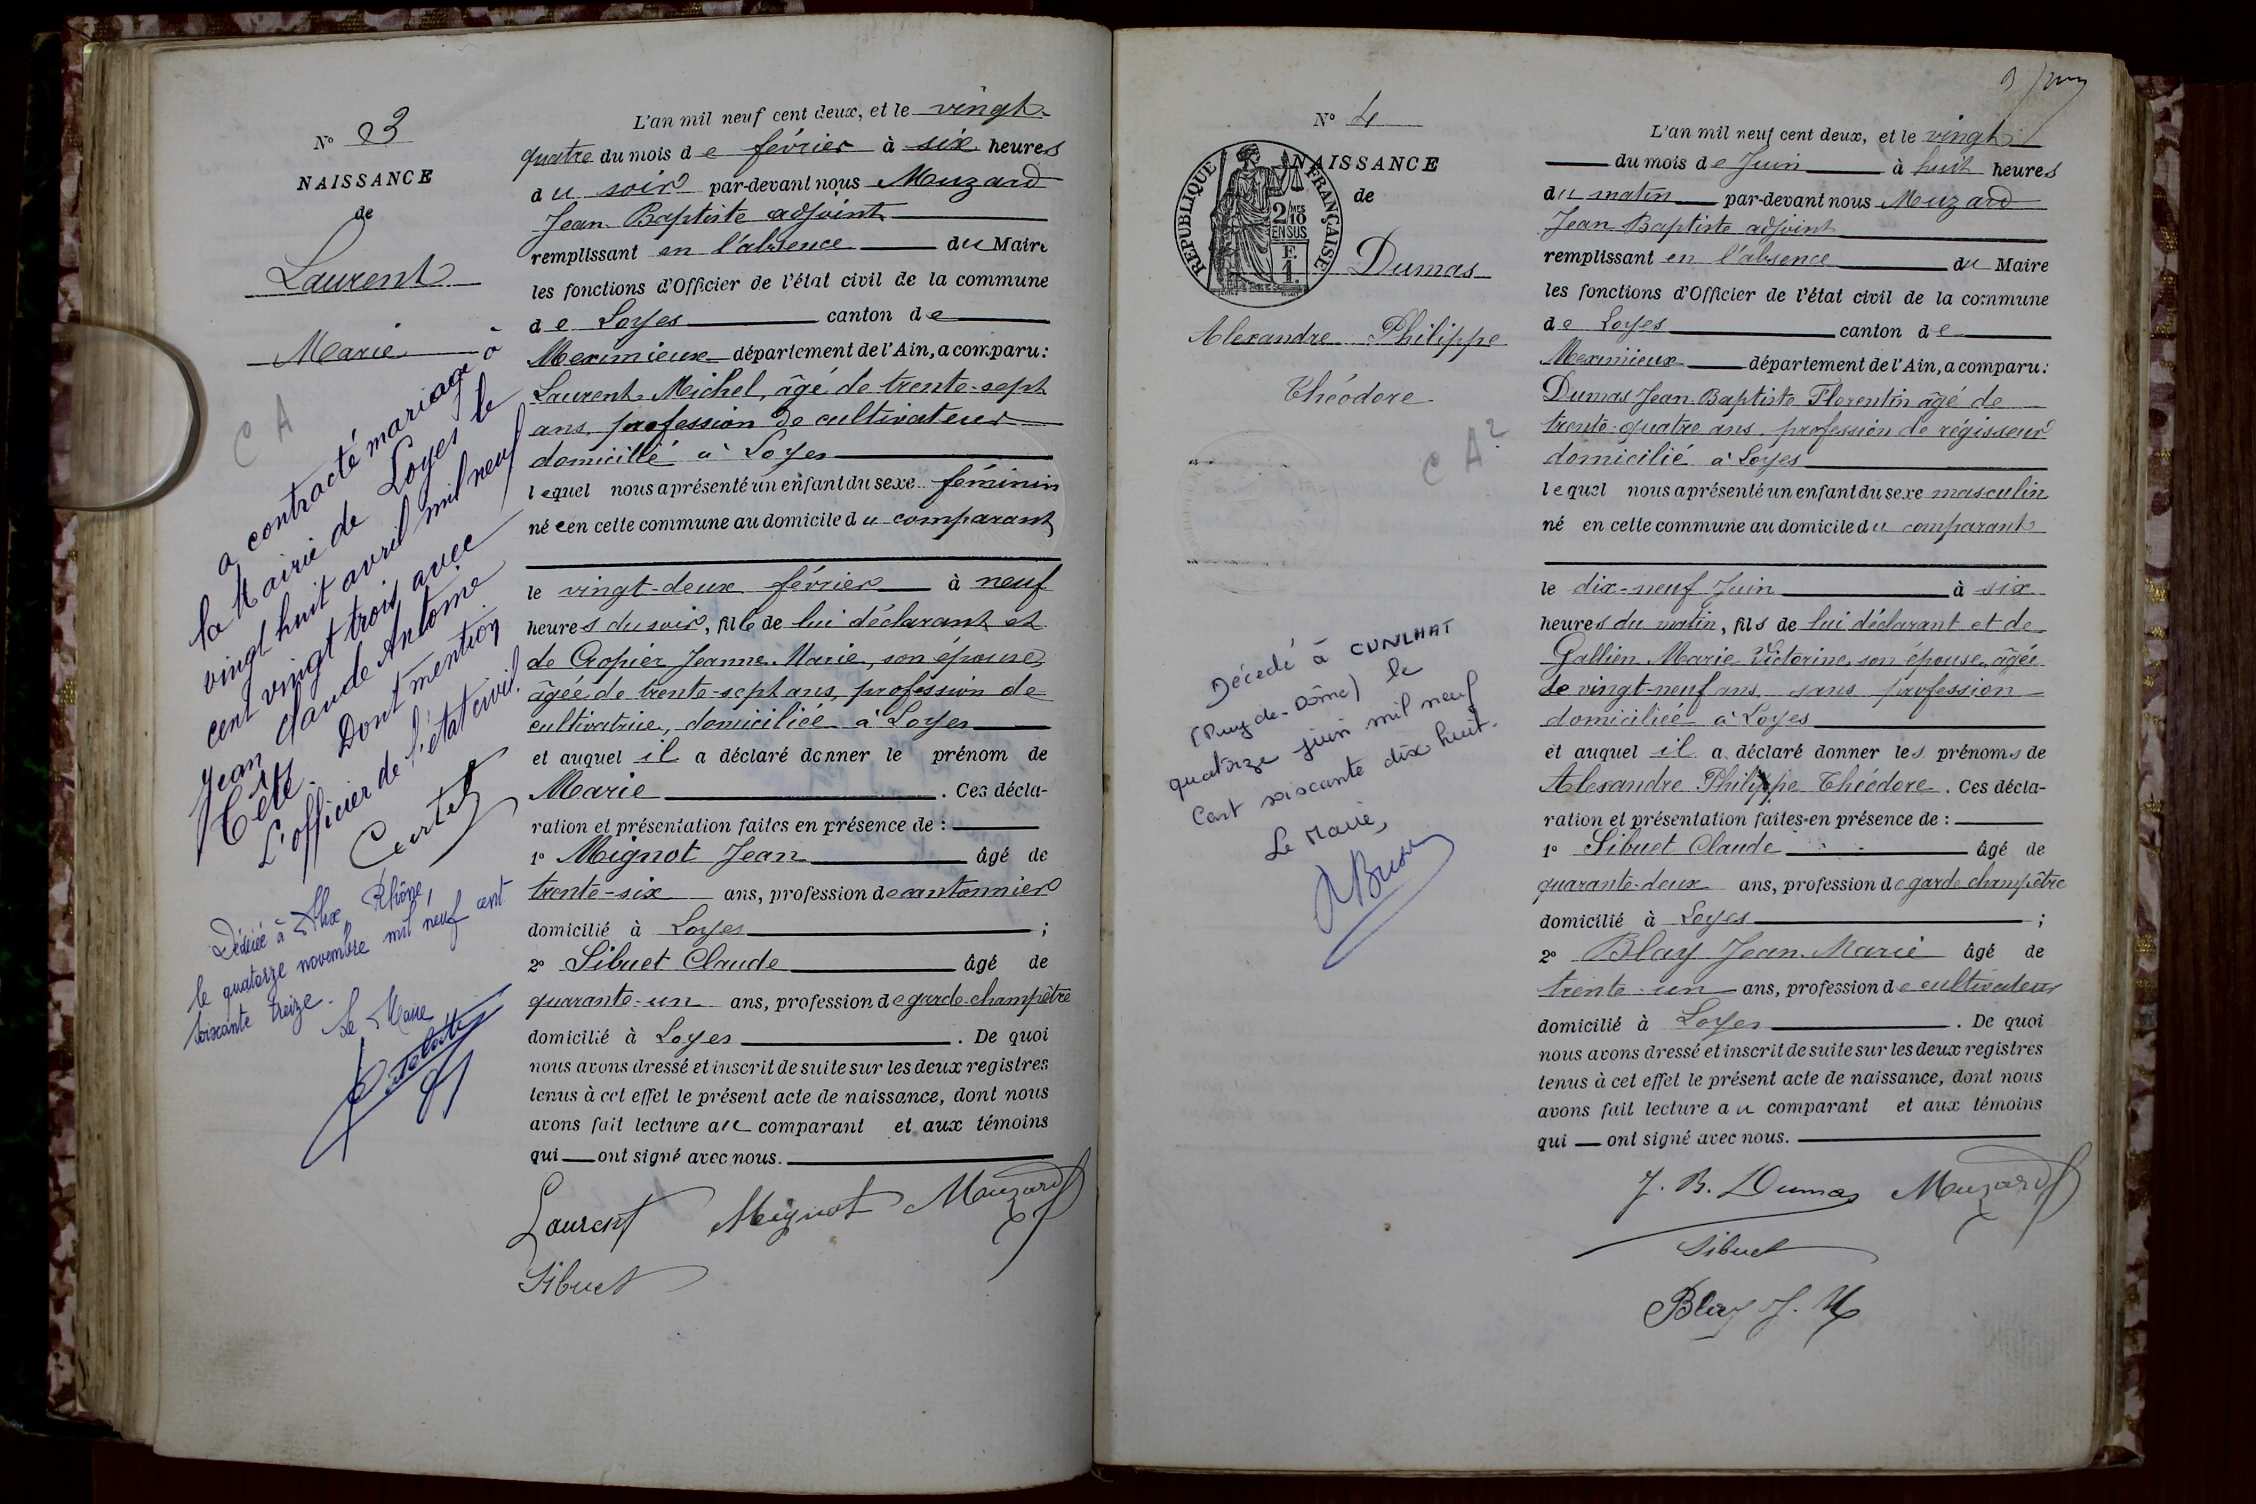 N° 3
NAISSANCE
de
Laurent
Marie
C A
a contracté mariage à
la Mairie de Loyes le
vingt huit avril mil neuf
cent vingt trois avec
Jean Claude Antoine
Têtê. Dont mention
L'officier de l'état civil.
Curtet
Décédée à Alix, Rhône,
le quatorze novembre mil neuf cent
soixante treize.
Le Maire
L'an mil neuf cent deux, et le vingt-
quatre du mois de février à six heures
du soir par-devant nous Muzard
Jean Baptiste adjoint
remplissant en l'absence du Maire
les fonctions d'Officier de l'état civil de la commune
de Loyes canton de
Meximieux département de l'Ain, a comparu:
Laurent Michel, âgé de trente-sept
ans, profession de cultivateur
domicilié à Loyes
lequel nous a présenté un enfant du sexe féminin
née en cette commune au domicile du comparant
le vingt-deux février à neuf
heures du soir, fille de lui déclarant et
de Cropier Jeanne Marie, son épouse,
âgée de trente-sept ans, profession de
cultivatrice, domiciliée à Loyes
et auquel il a déclaré donner le prénom de
Marie. Ces décla-
ration et présentation faites en présence de :
1° Mignot Jean âgé de
trente-six ans, profession de cantonnier
domicilié à Loyes ;
2° Sibuet Claude âgé de
quarante-un ans, profession de garde-champêtre
domicilié à Loyes. De quoi
nous avons dressé et inscrit de suite sur les deux registres
tenus à cet effet le présent acte de naissance, dont nous
avons fait lecture au comparant et aux témoins
qui ont signé avec nous.
Laurent Mignot Muzard
Sibuet
N° 4
NAISSANCE
de
REPUBLIQUE FRANÇAISE
2/10 MES
EN SUS
F.
1.
Dumas
Alexandre Philippe
Théodore
C A ?
Décédé à CUNLHAT
(Puy-de-Dôme) le
quatorze juin mil neuf
Cent soixante dix huit.
Le Maire,
L'an mil neuf cent deux, et le vingt
du mois de Juin à huit heures
du matin par-devant nous Muzard
Jean Baptiste adjoint
remplissant en l'absence du Maire
les fonctions d'Officier de l'état civil de la commune
de Loyes canton de
Meximieux département de l'Ain, a comparu:
Dumas Jean Baptiste Florentin âgé de
trente-quatre ans, profession de régisseur
domicilié à Loyes
lequel nous a présenté un enfant du sexe masculin
né en cette commune au domicile du comparant
le dix-neuf Juin à six
heures du matin, fils de lui déclarant et de
Gallien Marie Victorine, son épouse, âgée
de vingt-neuf ans, sans profession
domiciliée à Loyes
et auquel il a déclaré donner les prénoms de
Alexandre Philippe Théodore. Ces décla-
ration et présentation faites en présence de :
1° Sibuet Claude âgé de
quarante-deux ans, profession de garde champêtre
domicilié à Loyes ;
2° Blay Jean Marie âgé de
trente-un ans, profession de cultivateur
domicilié à Loyes. De quoi
nous avons dressé et inscrit de suite sur les deux registres
tenus à cet effet le présent acte de naissance, dont nous
avons fait lecture au comparant et aux témoins
qui ont signé avec nous.
J. B. Dumas Muzard
Sibuet
Blay J. M